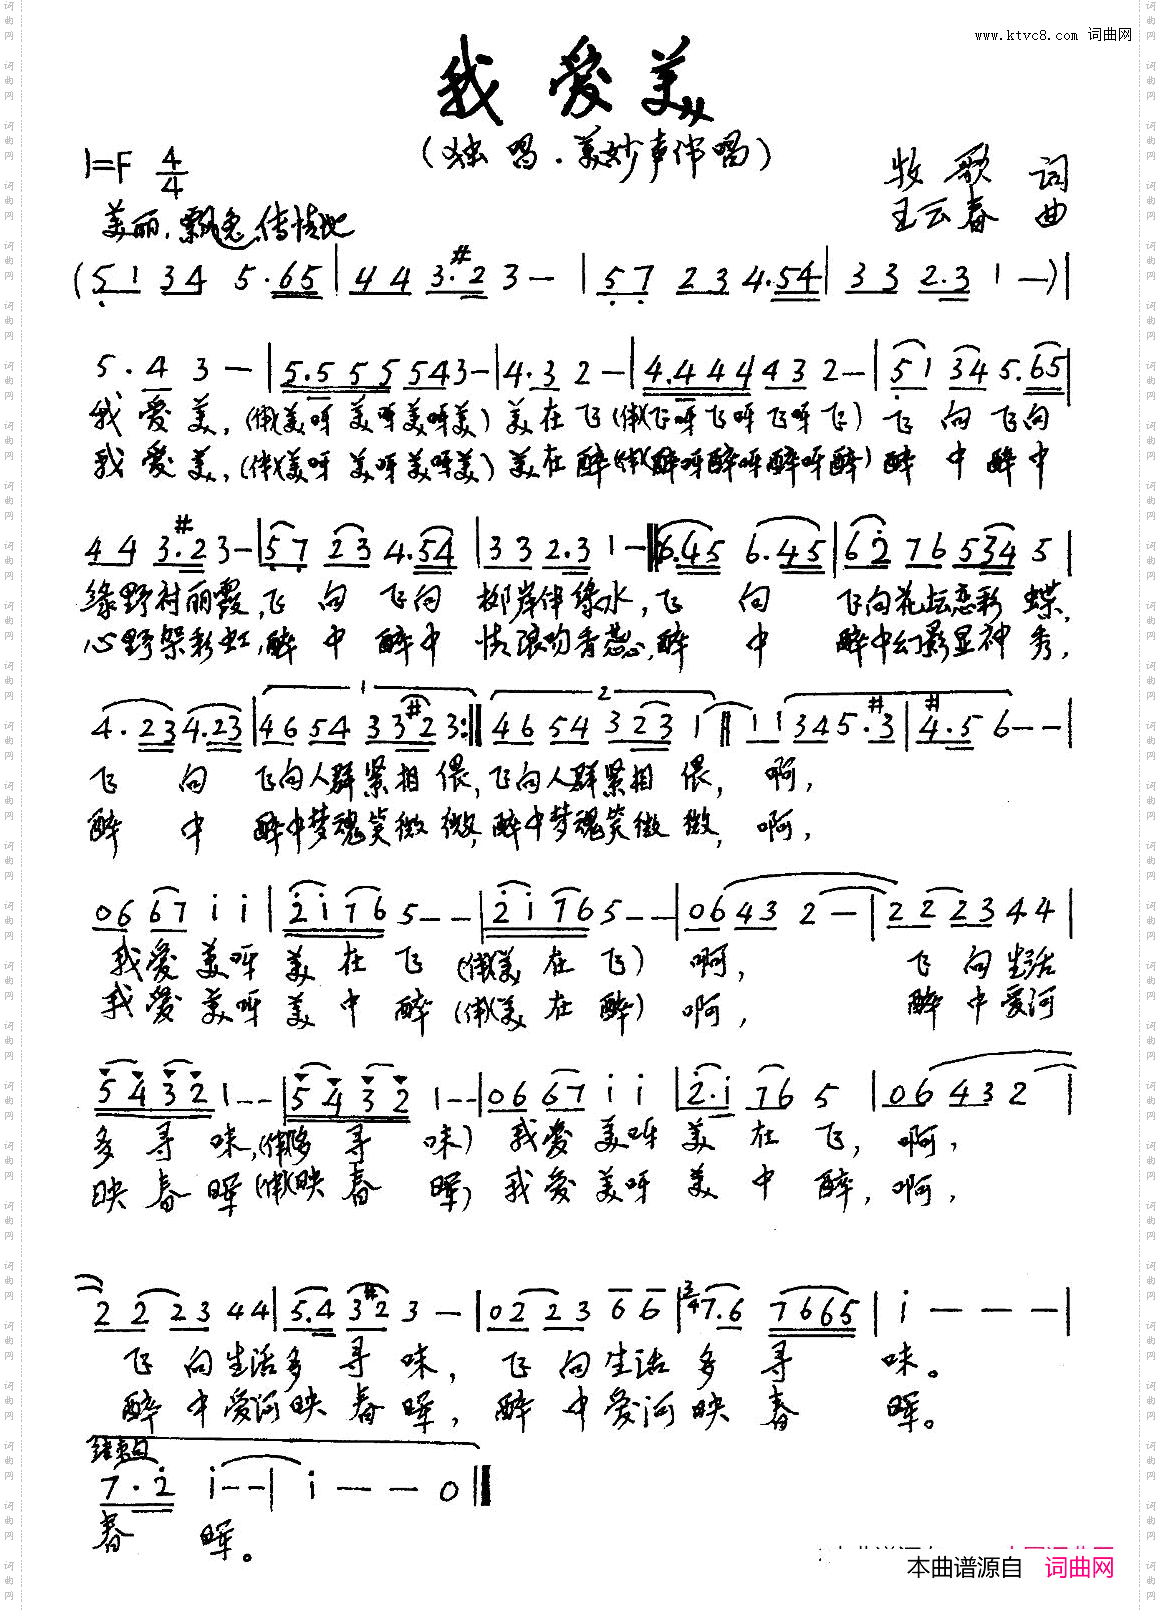 www.ktvc8.com 词曲网
我爱美
(独唱.美妙声伴唱)
1=F 4/4
牧歌 词
王云春 曲
美丽、飘逸、传情地
(51 34 5·65 | 44 3·#2 3 — | 57 23 4·54 | 33 2·3 1 —) |
5·4 3 — | 5·5 55 543— | 4·3 2 — | 4·4 44 432— | 51 34 5·65 |
我爱美,(伴)(美呀美呀美呀美)美在飞(伴)(飞呀飞呀飞呀飞)飞向飞向
我爱美,(伴)(美呀美呀美呀美)美在醉(伴)(醉呀醉呀醉呀醉)醉中醉中
44 3·#2 3— | 57 23 4·54 | 33 2·3 1— ‖ 6·45 6·45 | 62 76 534 5 |
绿野衬丽霞,飞向飞向柳岸伴绿水,飞向飞向花坛恋彩蝶,
心野架彩虹,醉中醉中情浪吻香蕊,醉中醉中幻影显神秀,
4·23 4·23 | 46 54 33#2 3 :‖ 46 54 323 1 ‖ 11 345·#3 | #4·5 6 — — |
飞向飞向人群紧相偎,飞向人群紧相偎,啊,
醉中醉中梦魂笑微微,醉中梦魂笑微微,啊,
06 67 i i | 2i76 5 — — | 2i76 5 — — | 06 43 2 — | 22 23 44 |
我爱美呀美在飞(伴)(美在飞)啊,飞向生活
我爱美呀美中醉(伴)(美在醉)啊,醉中爱河
5432 1 — — | 5432 1 — — | 06 67 i i | 2·i 76 5 | 06 43 2 |
多寻味,(伴)(多寻味)我爱美呀美在飞,啊,
映春晖(伴)(映春晖)我爱美呀美中醉,啊,
22 23 44 | 5·4 3#2 3 — | 02 23 6 6 | 2/4 7·6 7665 | i — — — |
飞向生活多寻味,飞向生活多寻味。
醉中爱河映春晖,醉中爱河映春晖。
结束句
7·2 i — — | i — — 0 ‖
春晖。
本曲谱源自 词曲网